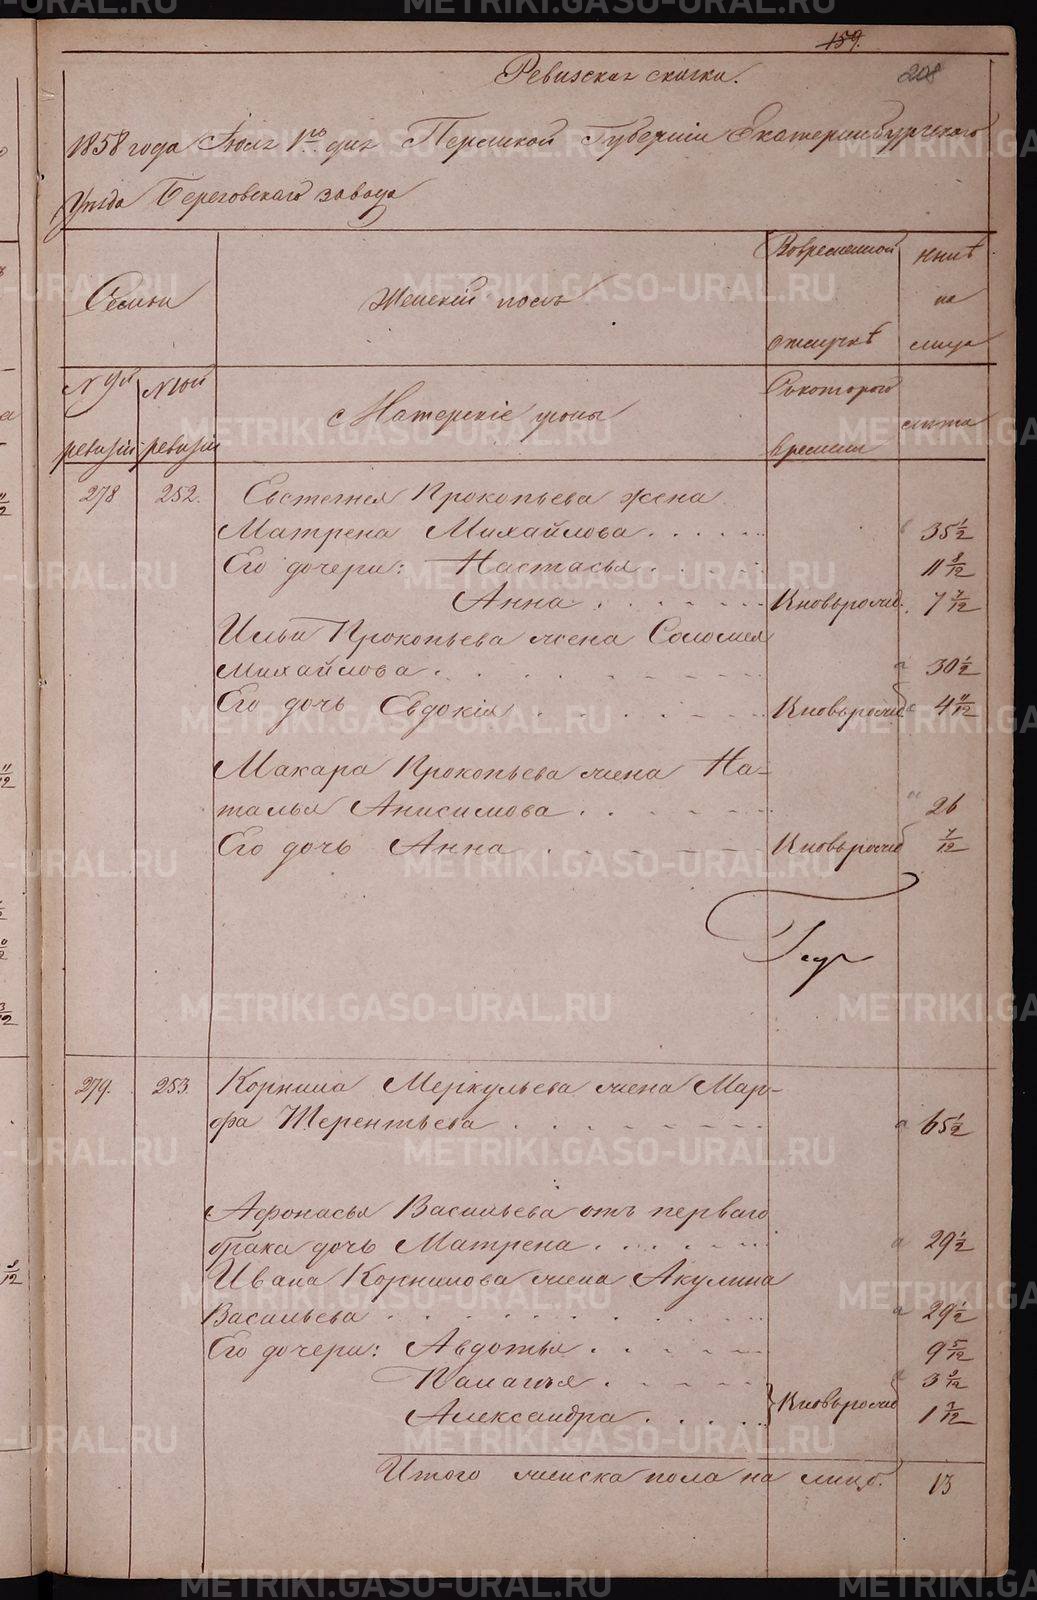 159.
Ревизская сказка.
208
1858 года Июля 1го дня Пермской Губерніи Екатеринбургскаго
Уѣзда Береговскаго завода
Семьи
Женскій полъ
Вовременной отлучкѣ
ннѣ на лицо
№ 9й ревизіи
№ 10й ревизіи
Матерскіе
Съкотораго времени
лѣта
278 252. Евстегнея Прокопьева жена
Матрена Михайлова . . . . . . 35 1/2
Его дочери: Настасья . . . . 11 8/12
Анна . . . . . . Кновьрожд. 7 7/12
Ильи Прокопьева жена Соломея
Михайлова . . . . . . . . . 30 1/2
Его дочь Евдокія . . . . . Кновьрожд 4 11/12
Макара Прокопьева жена На-
талья Анисимова . . . . . . 26
Его дочь Анна . . . . . . Кновьрожд 7/12
279. 253. Корнила Меркульева жена Мар-
фа Терентьева . . . . . . . . 65 1/2
Афонасья Васильева отъ перваго
брака дочь Матрена . . . . . . 29 1/2
Ивана Корнилова жена Акулина
Васильева . . . . . . . . . . 29 1/2
Его дочери: Авдотья . . . . . 9 5/12
Палагъя . . . . . 3 9/12
Александра . . . . . Кновьрожд 1 7/12
Итого женска пола на лицо. 13
METRIKI.GASO-URAL.RU